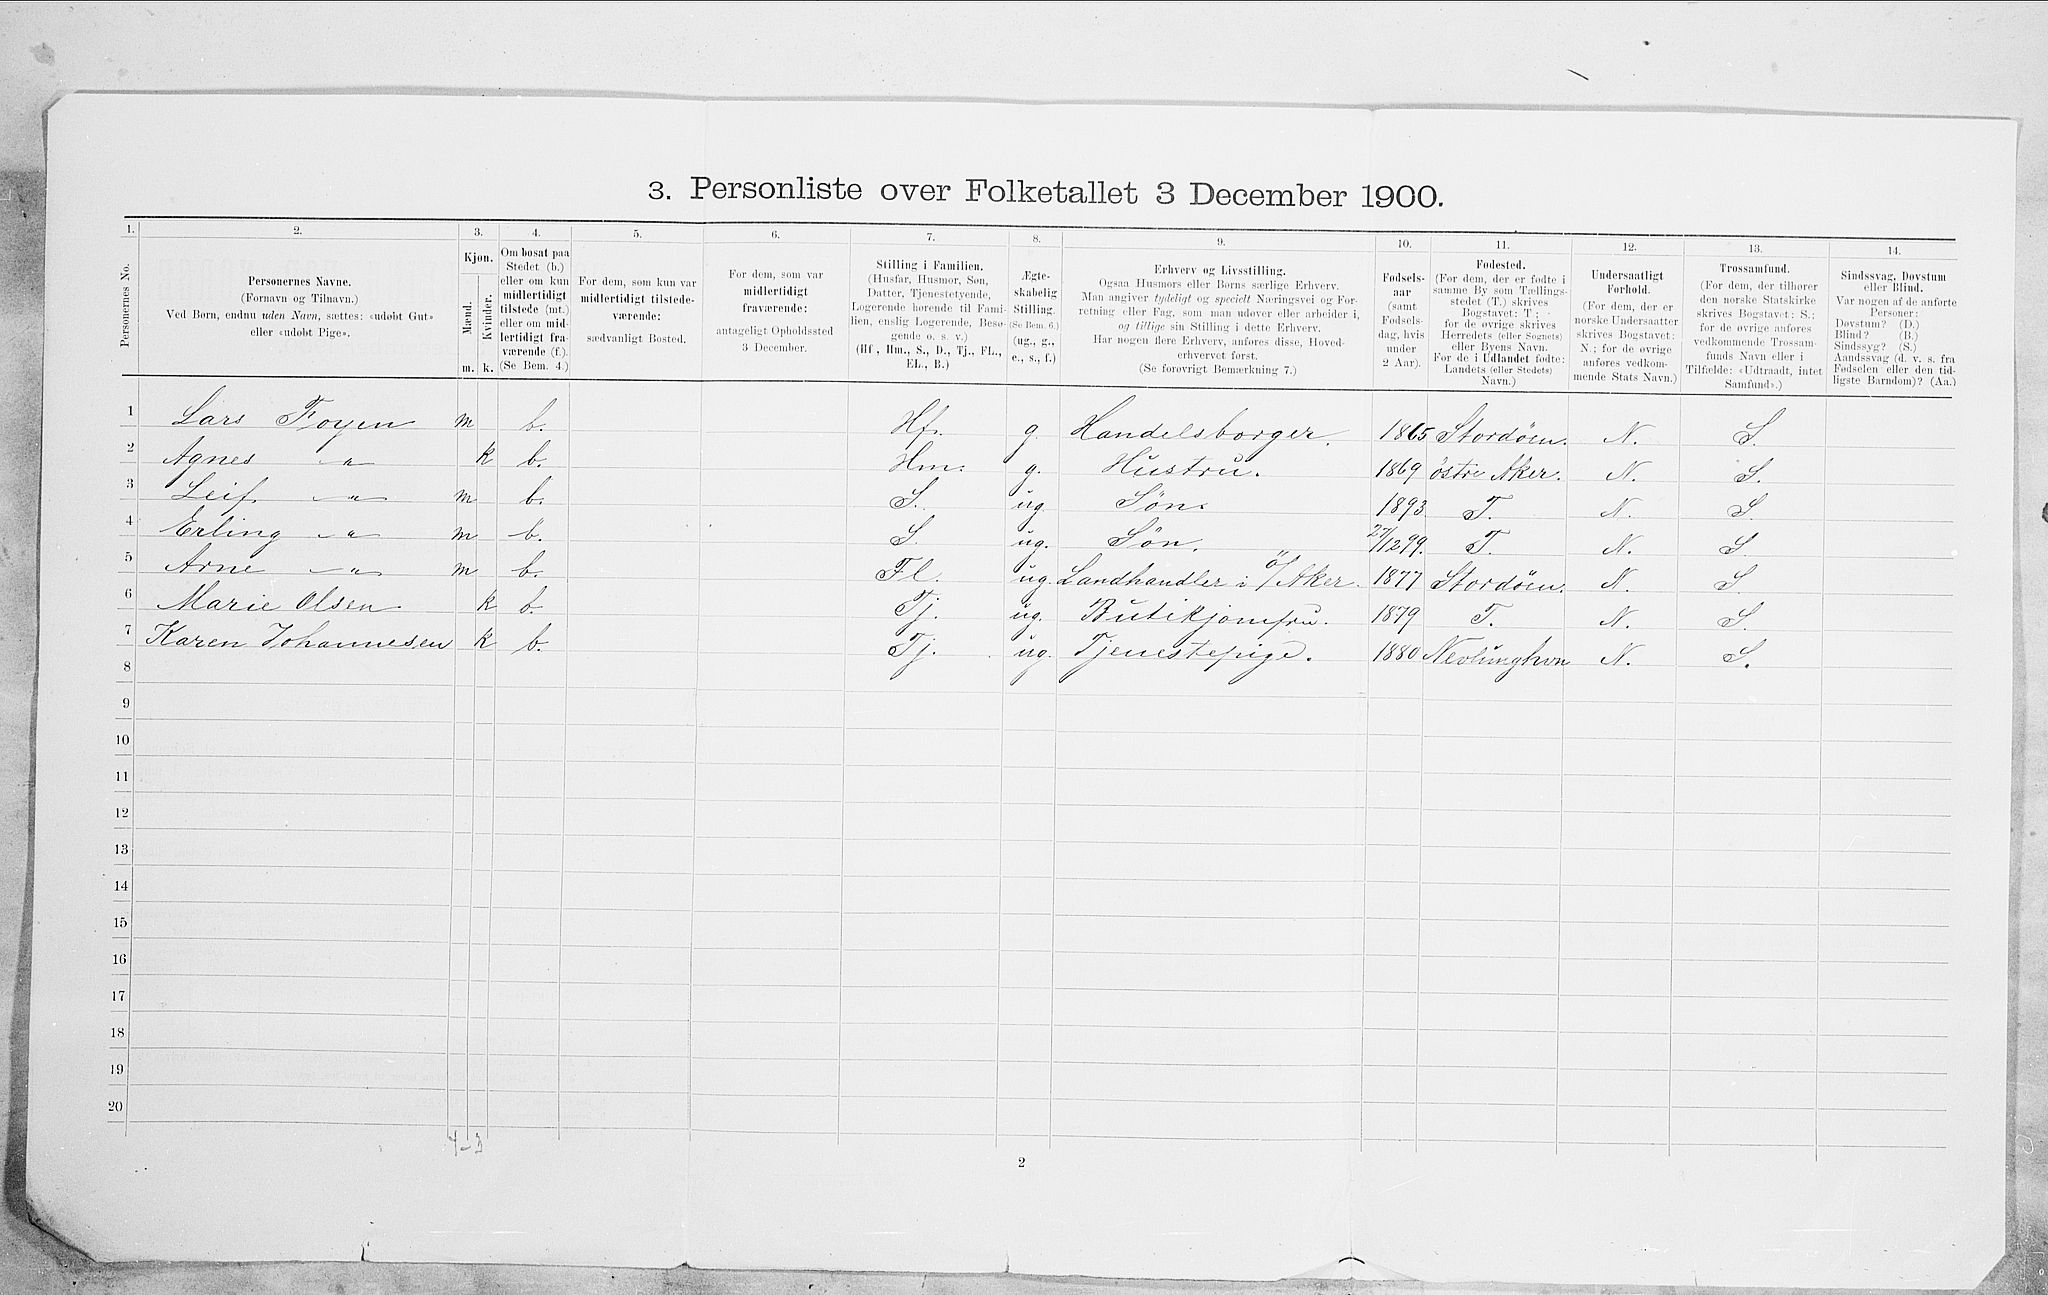 3. Personliste over Folketallet 3 December 1900.
1. 2. 3. 4. 5. 6. 7. 8. 9. 10. 11. 12. 13. 14.
Personernes No.
Personernes Navne.
(Fornavn og Tilnavn.)
Ved Børn, endnu uden Navn, sættes: «udøbt Gut»
eller «udøbt Pige».
Kjøn.
Mænd.
Kvinder.
m. k.
Om bosat paa
Stedet (b.)
eller om kun
midlertidigt
tilstede (mt.)
eller om mid-
lertidigt fra-
værende (f.).
(Se Bem. 4.)
For dem, som kun var
midlertidigt tilstede-
værende:
sædvanligt Bosted.
For dem, som var
midlertidigt
fraværende:
antageligt Opholdssted
3 December.
Stilling i Familien.
(Husfar, Husmor, Søn,
Datter, Tjenestetyende,
Logerende hørende til Fami-
lien, enslig Logerende, Besø-
gende o. s. v.)
(Hf., Hm., S., D., Tj., FL.,
EL., B.)
Ægte-
skabelig
Stilling.
(Se Bem. 6.)
(ug., g.,
e., s., f.)
Erhverv og Livsstilling.
Ogsaa Husmors eller Børns særlige Erhverv.
Man angiver tydeligt og specielt Næringsvei og For-
retning eller Fag, som man udøver eller arbeider i,
og tillige sin Stilling i dette Erhverv.
Har nogen flere Erhverv, anføres disse, Hoved-
erhvervet først.
(Se forøvrigt Bemærkning 7.)
Fødsels-
aar
(samt
Fødsels-
dag, hvis
under
2 Aar).
Fødested.
(For dem, der er fødte i
samme By som Tællings-
stedet (T.) skrives
Bogstavet: T;
for de øvrige skrives
Herredets (eller Sognets)
eller Byens Navn.
For de i Udlandet fødte:
Landets (eller Stedets)
Navn.)
Undersaatligt
Forhold.
(For dem, der er
norske Undersaatter
skrives Bogstavet:
N.; for de øvrige
anføres vedkom-
mende Stats Navn.)
Trossamfund.
(For dem, der tilhører
den norske Statskirke
skrives Bogstavet: S.;
for de øvrige anføres
vedkommende Trossam-
funds Navn eller i
Tilfælde: «Udtraadt, intet
Samfund».)
Sindssvag, Døvstum
eller Blind.
Var nogen af de anførte
Personer:
Døvstum? (D.)
Blind? (B.)
Sindssyg? (S.)
Aandssvag (d. v. s. fra
Fødselen eller den tid-
ligste Barndom)? (Aa.)
1 Lars Foyen m b. Hf. g. Handelsborger. 1865 Stordøen. N. S.
2 Agnes —"— k b. Hm. g. Hustru. 1869 østre Aker. N. S.
3 Leif —"— m b. S. ug. Søn. 1893. T. N. S
4 Erling —"— m b. S. ug. Søn. 27/1299. T. N. S
5 Arne —"— m b. Fl. ug. Landhandler i Ö/Aker. 1877 Stordøen. N. S.
6 Marie Olsen k b. Tj. ug. Butikjomfru. 1879 T. N. S.
7 Karen Johannesen k b. Tj. ug. Tjenestepige. 1880 Nevlunghvn N. S.
8
9
10
11
12
13
14
15
16
17
18
19
20
4–3
2